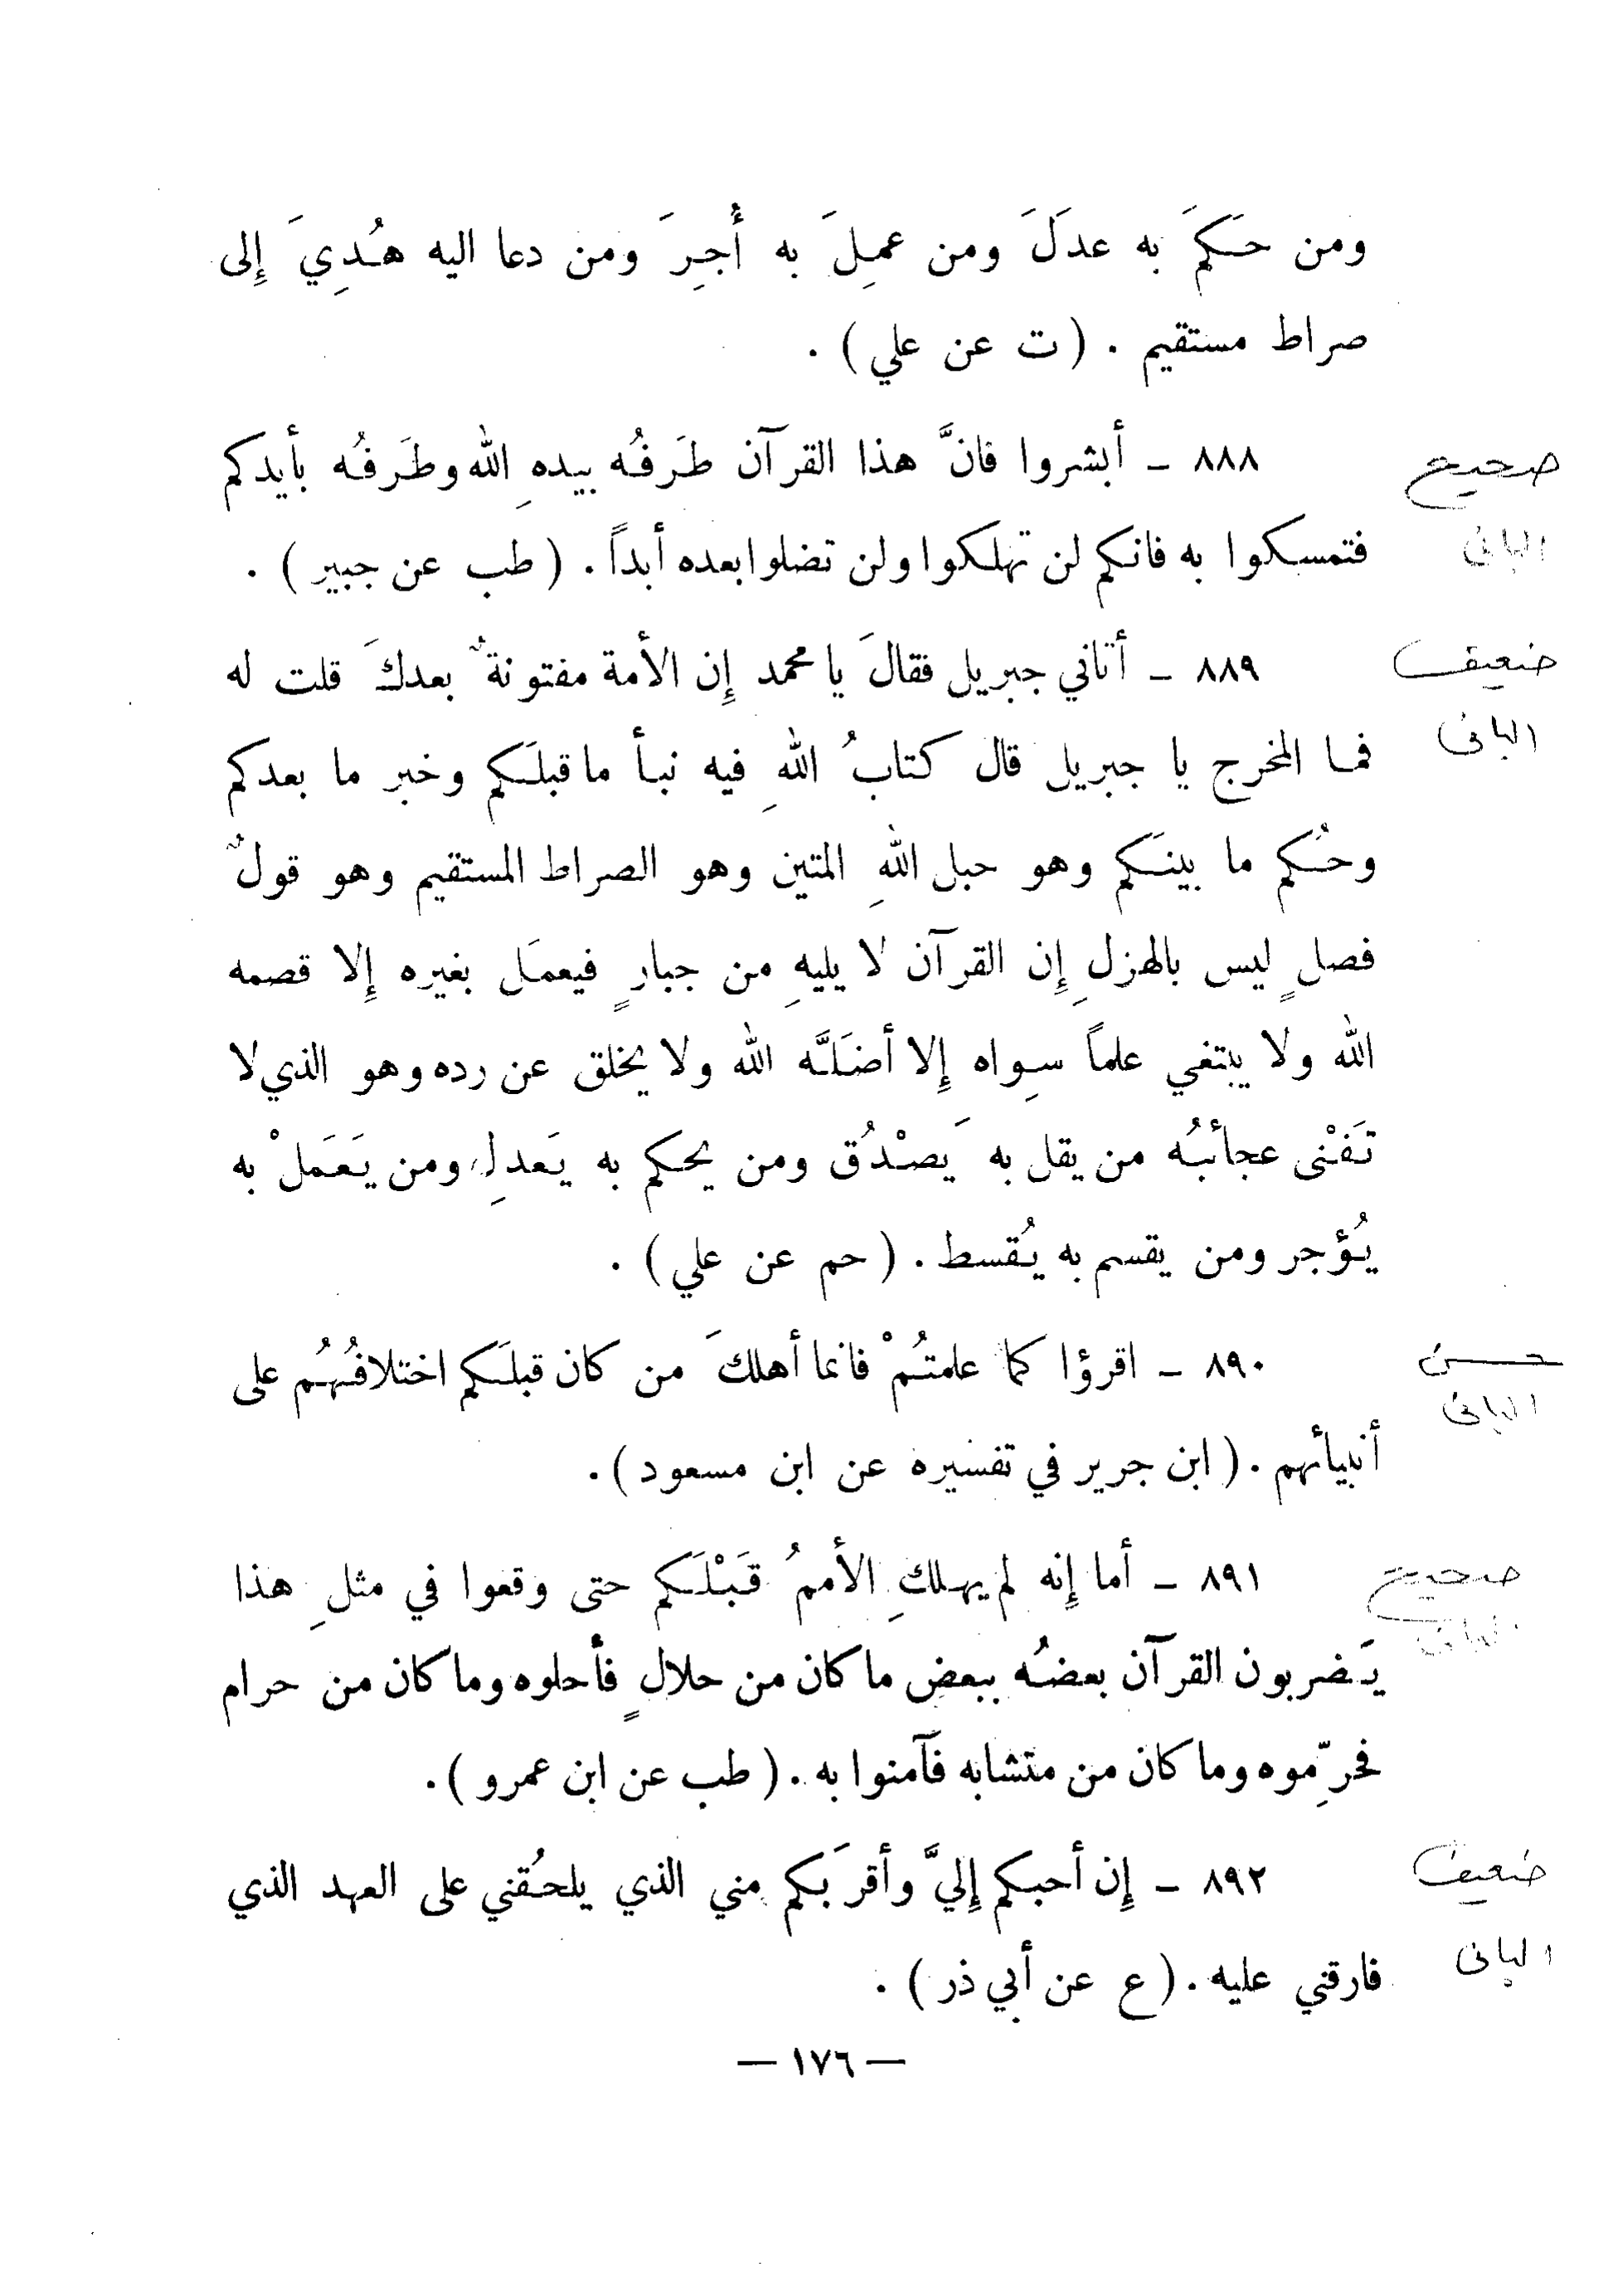 ومن حَكمَ به عدلَ ومن عمِلَ به أُجِرَ ومن دعا اليه هُدِيَ إِلى
صراط مستقيم . ( ت عن علي ) .
صحيح
٨٨٨ – أبشروا فانَّ هذا القرآن طَرفُه بيدهِ الله وطَرفُه بأيدكم
البانى
فتمسكوا به فانكم لن تهلكوا ولن تضلوا بعده أبداً . ( طب عن جبير ) .
ضعيف
٨٨٩ – أتاني جبريل فقالَ يا محمد إِن الأمة مفتونةٌ بعدكَ قلت له
البانى
فما المخرج يا جبريل قال كتابُ اللهِ فيه نبأ ما قبلَكم وخبر ما بعدكم
وحُكم ما بينَكم وهو حبل اللهِ المتين وهو الصراط المستقيم وهو قولٌ
فصلٍ ليس بالهزلِ إِن القرآن لا يليهِ من جبارٍ فيعمَل بغيره إِلا قصمه
الله ولا يبتغي علماً سِواه إِلا أضَلَّه الله ولا يخلق عن رده وهو الذي لا
تَفْنى عجائبُه من يقل به يَصْدُق ومن يحكم به يَعدلِ ومن يَعَملْ به
يُؤجر ومن يقسم به يُقسط . ( حم عن علي ) .
حسن
٨٩٠ – اقرؤا كما علمتُمْ فانما أهلكَ من كان قبلَكم اختلافُهُم على
البانى
أنبيائهم . ( ابن جرير في تفسيره عن ابن مسعود ) .
صحيح
٨٩١ – أما إِنه لم يهلكِ الأممُ قَبْلَكم حتى وقعوا في مثلِ هذا
البانى
يَضربون القرآن بعضُه ببعضٍ ما كان من حلالٍ فأحلوه وما كان من حرام
فحرِّموه وما كان من متشابه فآمنوا به . ( طب عن ابن عمرو ) .
ضعيف
٨٩٢ – إِن أحبكم إِليَّ وأقرَبكم مني الذي يلحُقني على العهد الذي
البانى
فارقني عليه . ( ع عن أبي ذر ) .
— ١٧٦ —